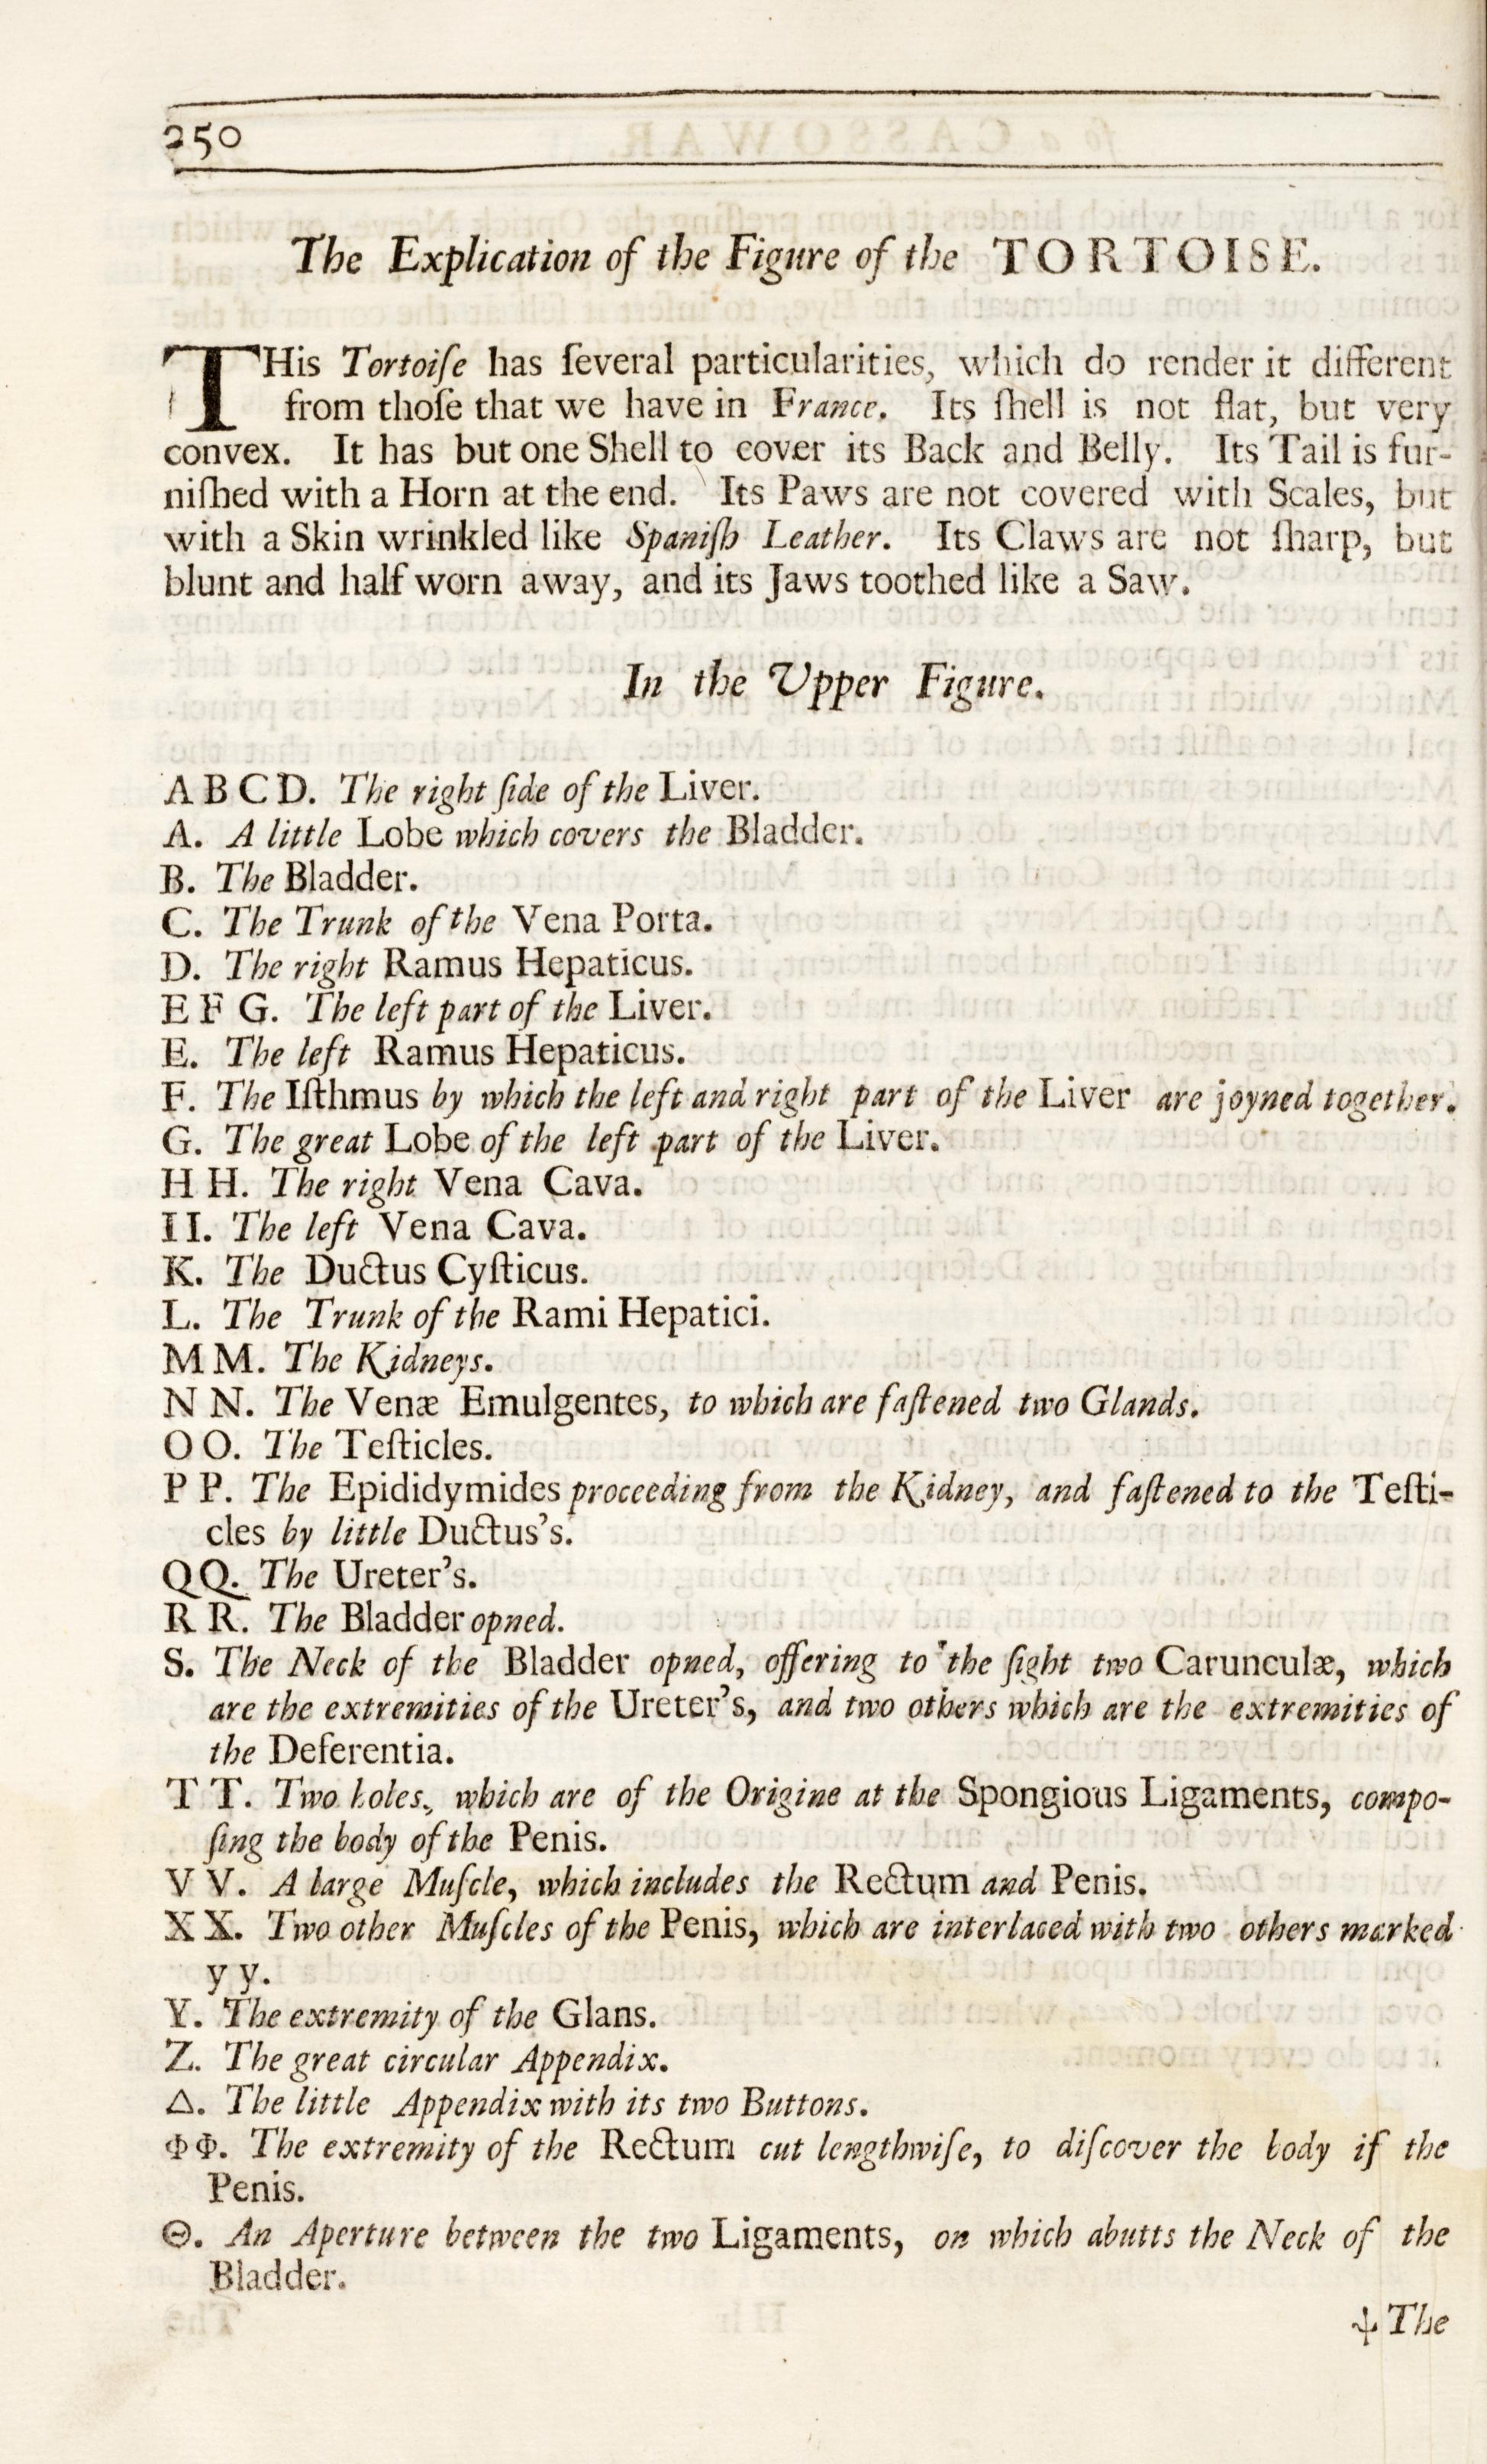 250
The Explication of the Figure of the TORTOISE.
THis Tortoiſe has ſeveral particularities, which do render it different
from thoſe that we have in France. Its ſhell is not flat, but very
convex. It has but one Shell to cover its Back and Belly. Its Tail is fur-
niſhed with a Horn at the end. Its Paws are not covered with Scales, but
with a Skin wrinkled like Spaniſh Leather. Its Claws are not ſharp, but
blunt and half worn away, and its Jaws toothed like a Saw.
In the Upper Figure.
A B C D. The right ſide of the Liver.
A. A little Lobe which covers the Bladder.
B. The Bladder.
C. The Trunk of the Vena Porta.
D. The right Ramus Hepaticus.
E F G. The left part of the Liver.
E. The left Ramus Hepaticus.
F. The Iſthmus by which the left and right part of the Liver are joyned together.
G. The great Lobe of the left part of the Liver.
H H. The right Vena Cava.
I I. The left Vena Cava.
K. The Ductus Cyſticus.
L. The Trunk of the Rami Hepatici.
M M. The Kidneys.
N N. The Venæ Emulgentes, to which are faſtened two Glands.
O O. The Teſticles.
P P. The Epididymides proceeding from the Kidney, and faſtened to the Teſti-
cles by little Ductus's.
Q Q. The Ureter's.
R R. The Bladder opned.
S. The Neck of the Bladder opned, offering to the ſight two Carunculæ, which
are the extremities of the Ureter's, and two others which are the extremities of
the Deferentia.
T T. Two holes, which are of the Origine at the Spongious Ligaments, compo-
ſing the body of the Penis.
V V. A large Muſcle, which includes the Rectum and Penis.
X X. Two other Muſcles of the Penis, which are interlaced with two others marked
y y.
Y. The extremity of the Glans.
Z. The great circular Appendix.
Δ. The little Appendix with its two Buttons.
Φ Φ. The extremity of the Rectum cut lengthwiſe, to diſcover the body if the
Penis.
Θ. An Aperture between the two Ligaments, on which abutts the Neck of the
Bladder.
⸸ The